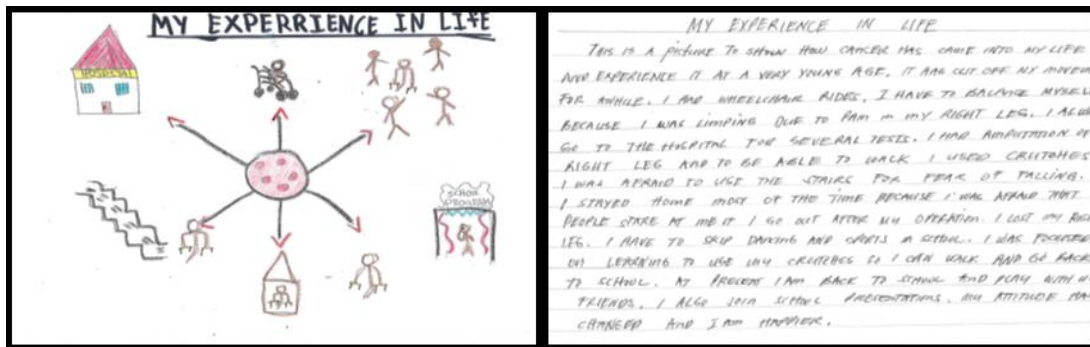 MY EXPERRIENCE IN LIFE
HOSPITAL
SCHOOL
PROGRAM
MY EXPERIENCE IN LIFE
THIS IS A PICTURE TO SHOW HOW CANCER HAS CAME INTO MY LIFE
AND EXPERIENCE IT AT A VERY YOUNG AGE. IT HAS CUT OFF MY
FOR AWHILE. I HAD WHEELCHAIR RIDES. I HAVE TO BALANCE
BECAUSE I WAS LIMPING DUE TO PAIN IN MY RIGHT LEG. I
GO TO THE HOSPITAL FOR SEVERAL TESTS. I HAD AMPUTATION OF
RIGHT LEG AND TO BE ABLE TO WALK I USED CRUTCHES
I WAS AFRAID TO USE THE STAIRS FOR FEAR OF FALLING.
I STAYED HOME MOST OF THE TIME BECAUSE I WAS AFRAID THAT
PEOPLE STARE AT ME IF I GO OUT AFTER MY OPERATION. I LOST MY
LEG. I HAVE TO SKIP DANCING AND SPORTS IN SCHOOL. I WAS FOCUSED
ON LEARNING TO USE MY CRUTCHES SO I CAN WALK AND GO BACK
TO SCHOOL. AT PRESENT I AM BACK TO SCHOOL AND PLAY WITH
FRIENDS. I ALSO JOIN SCHOOL PRESENTATIONS. MY ATTITUDE HAS
CHANGED AND I AM HAPPIER.